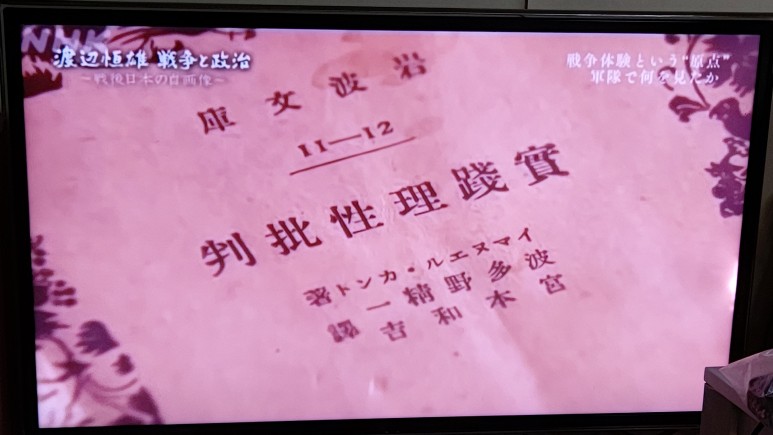 NHK
渡辺恒雄 戦争と政治
～戦後日本の自画像～
戦争体験という“原点”
軍隊で何を見たか
岩波文庫
11—12
實踐理性批判
イマヌエル・カント著
波多野精一
宮本和吉譯